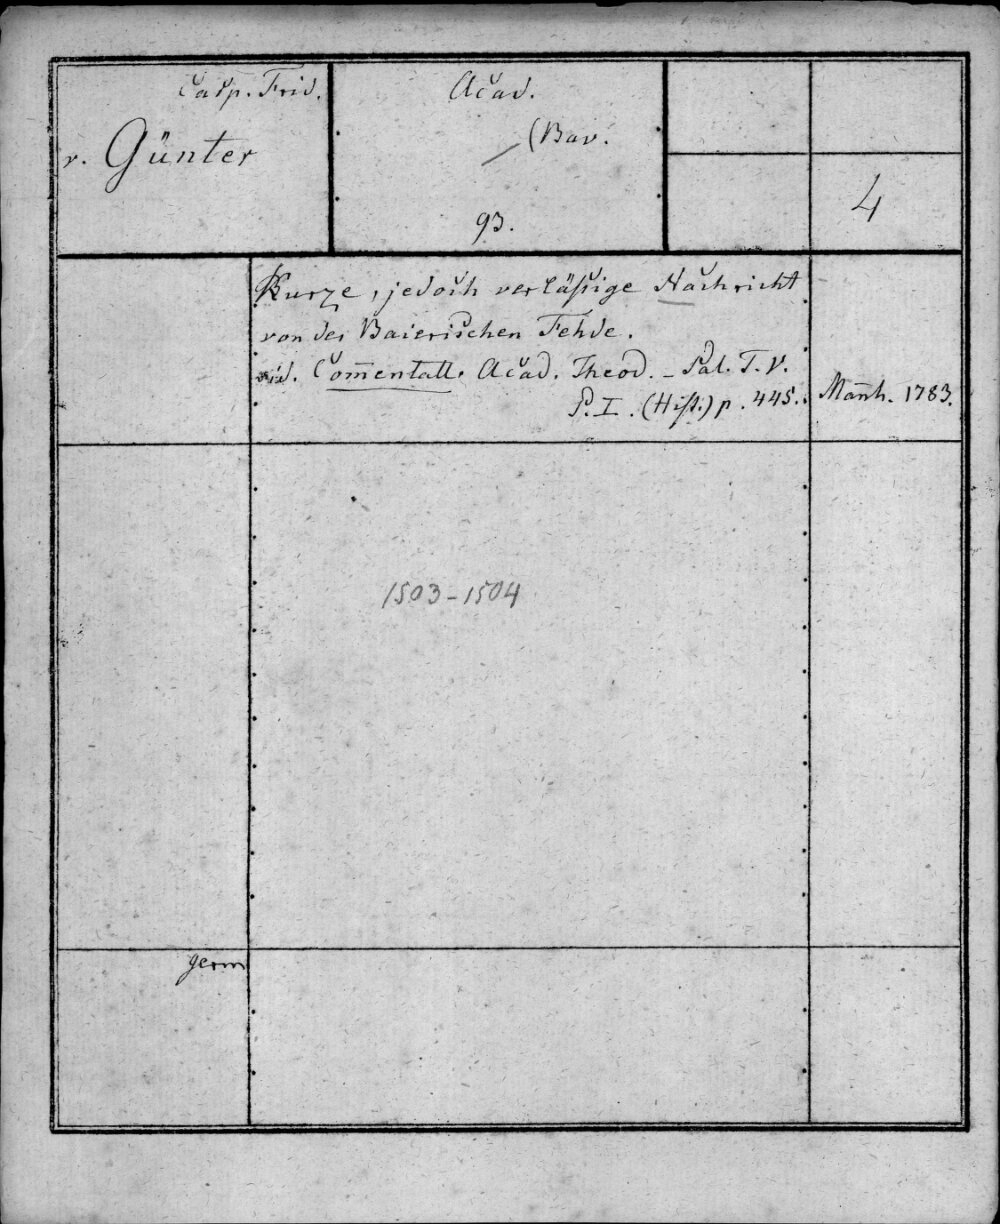 Casp. Frid.
v. Günter
Acad.
(Bav.
93.
4
Kurze, jedoch verläßige Nachricht
von der Baierischen Fehde.
vid. Com̄entatt. Acad. Theod. - Pal. T. V.
P. I. (Hist.) p. 445.
Man̄h. 1783.
1503-1504
germ